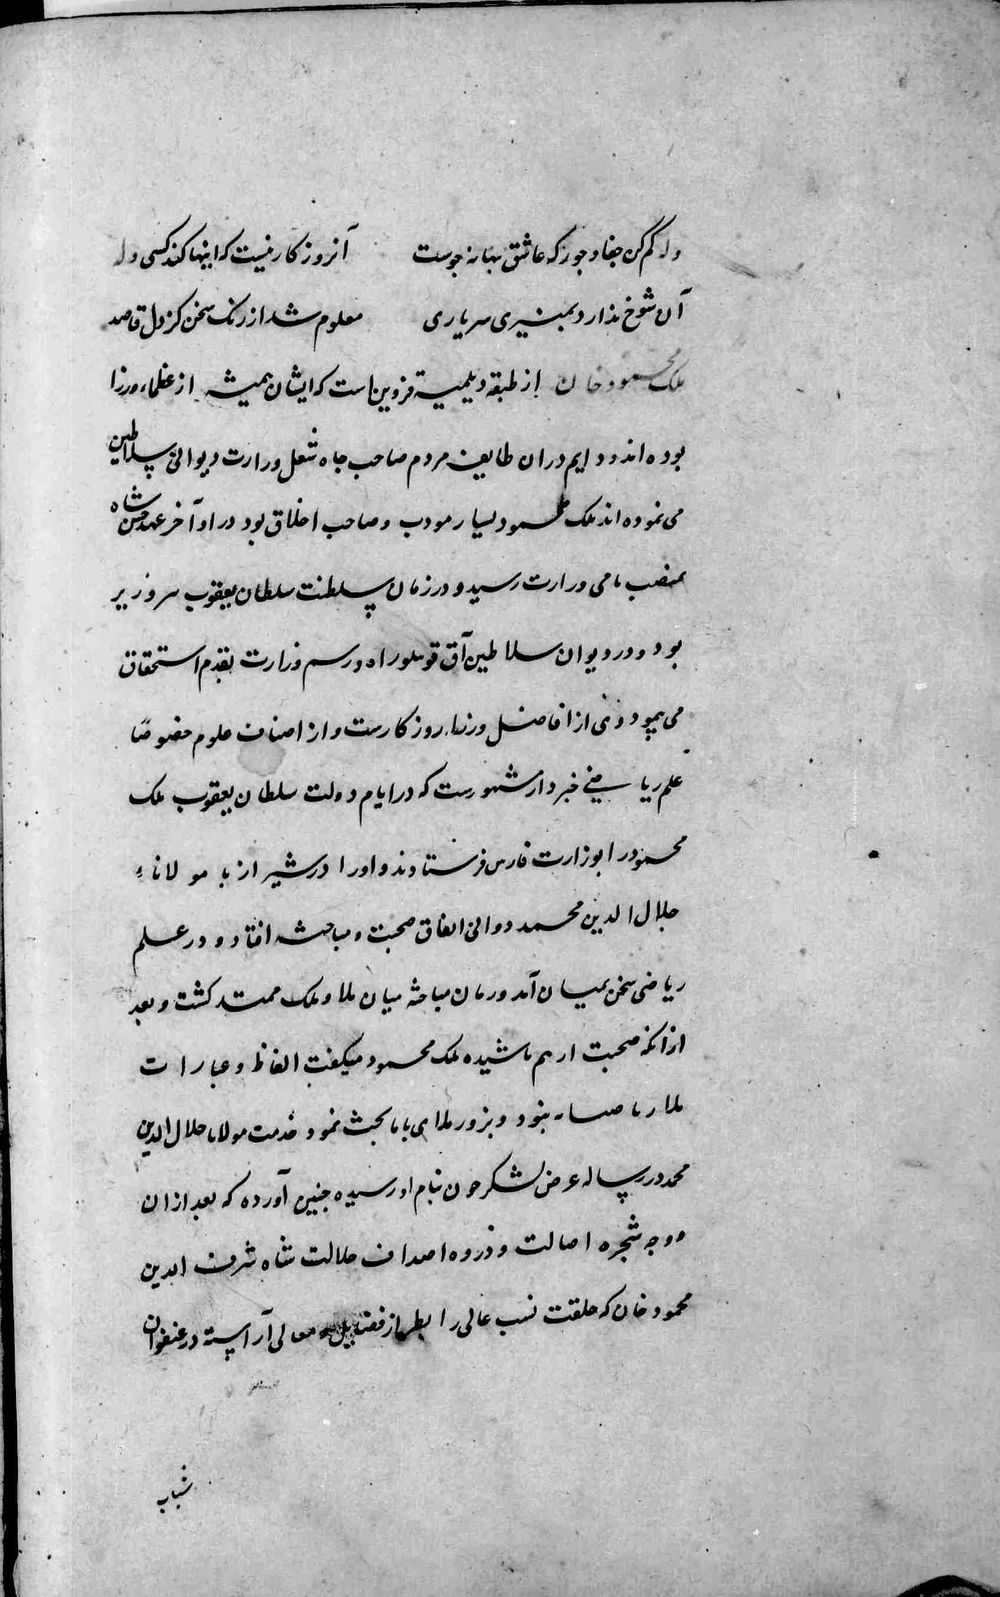 وله کم کن جفا و جور که عاشق بهانه جوست آنروز کار نیست که اینها کند کسی وله
آن شوخ ندارد بمنیری سر یاری معلوم شد از رنگ سخن کز دل قاصد
ملک محمود خان از طبقه دیلمیه قزوین است که ایشان همیشه از عظماء وزرا
بوده اند و دایم در ان طایفه مردم صاحب جاه شغل وزارت دیوانی سلاطین
می نموده اند ملک محمود بسیار مودب و صاحب اخلاق بود در اواخر عهد حسن شاه
بمنصب نامی وزارت رسید و در زمان سلطنت سلطان یعقوب سر وزیر
بود و در دیوان سلاطین آق قوینلو راه و رسم وزارت بقدم استحقاق
می پیمود و وی از افاضل وزراء روزکارست و از اصناف علوم خصوصًا
علم ریاضی خبردار مشهورست که در ایام دولت سلطان یعقوب ملک
محمود را بوزارت فارس فرستادند و او را در شیراز با مولانا
جلال الدین محمد دوانی اتفاق صحبت و مباحثه افتاد و در علم
ریاضی سخن بمیان آمد و زمان مباحثه میان ملا و ملک ممتد کشت و بعد
ازانکه صحبت از هم پاشیده ملک محمود میکفت الفاظ و عبارات
ملا نبود و بزور ملایی با ما بحث نمود خدمت مولانا جلال الدین
محمد در رساله عرض لشکر چون بنام او رسیده چنین آورده که بعد از ان
دوحه شجره اصالت و ذروه جلالت شاه شرف الدین
محمود خان که خلقت نسب عالی را بطراز فضایل و معالی آراسته در عنفوان
شباب